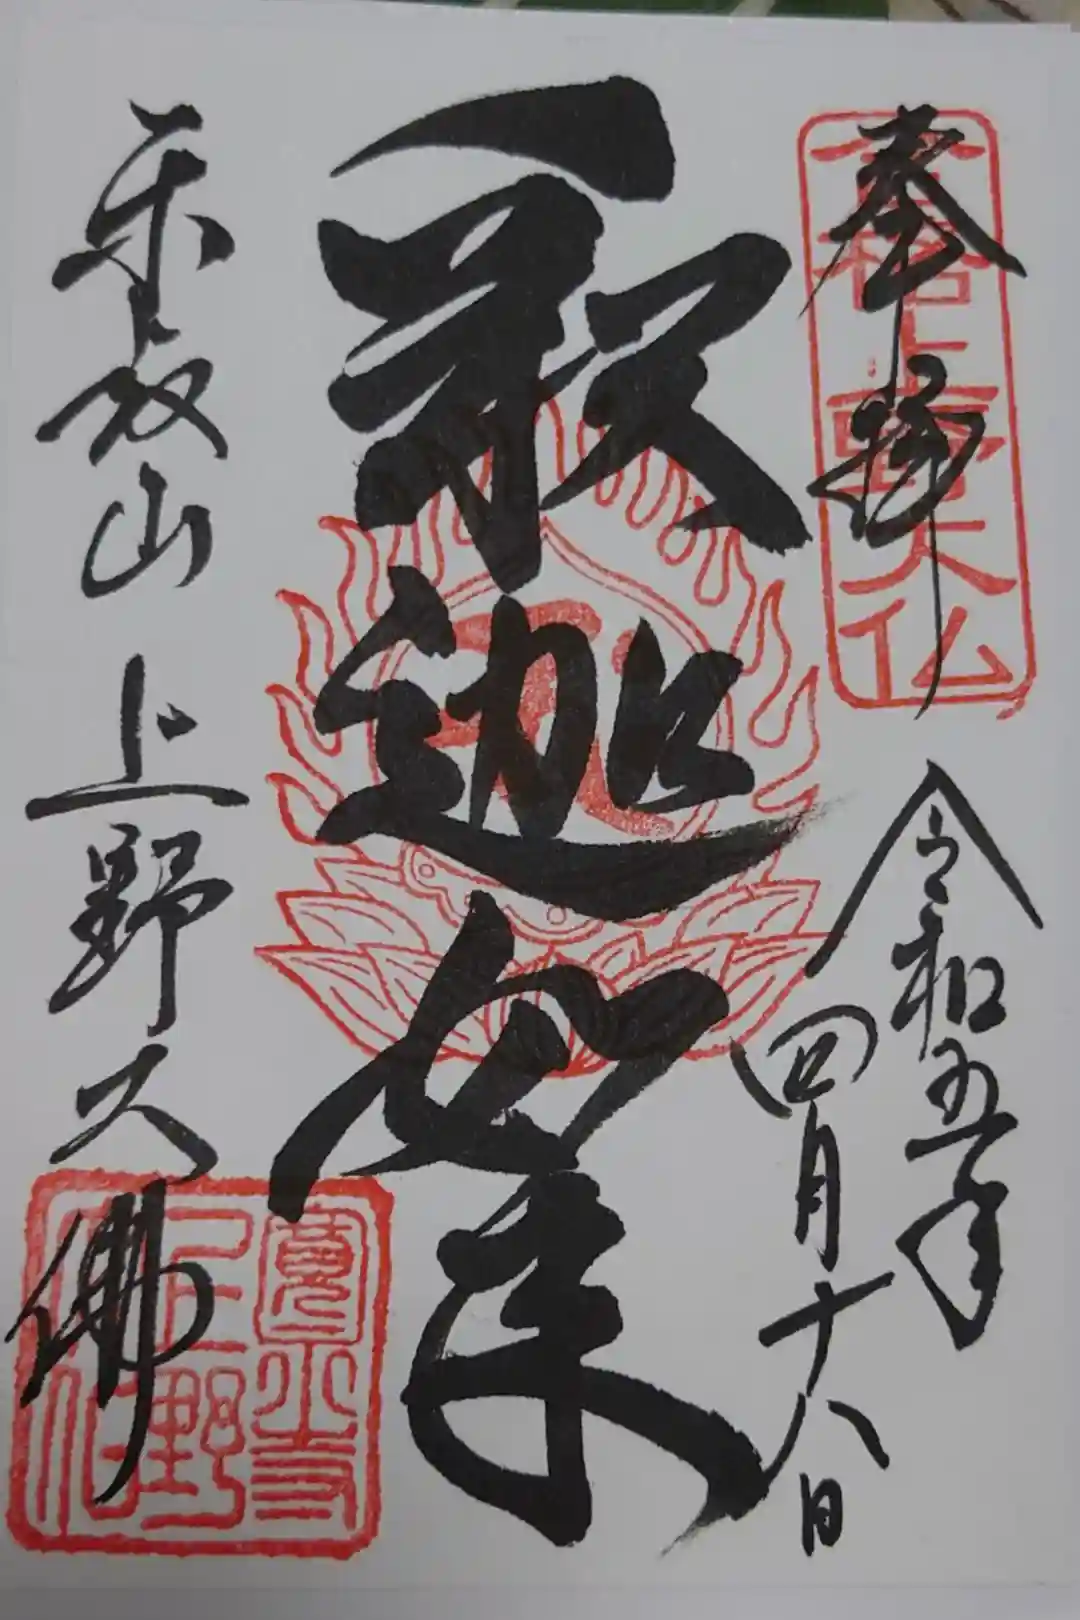 奉拝
合格上野大仏
令和五年
四月十八日
釈迦如来
東叡山 上野大佛
寛永寺
上野
大仏